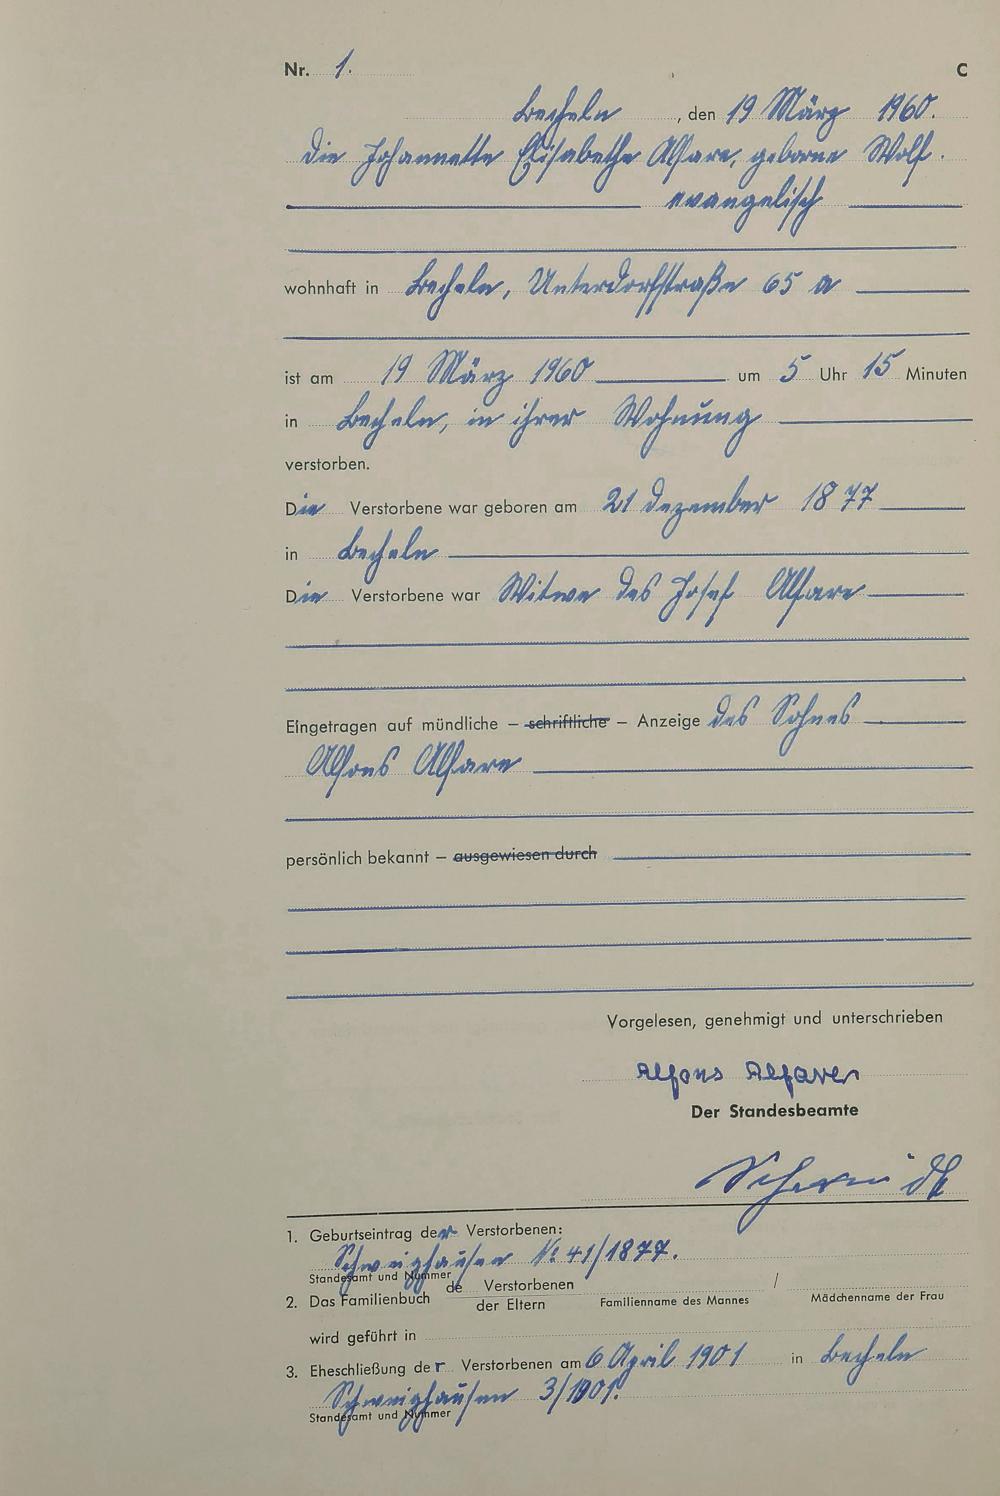 Nr. 1. C
Becheln, den 19 März 1960.
Die Johannette Elisabethe Alfare, geborne Wolf.
evangelisch
wohnhaft in Becheln, Unterdorfstraße 65 a
ist am 19 März 1960 um 5 Uhr 15 Minuten
in Becheln, in ihrer Wohnung
verstorben.
Die Verstorbene war geboren am 21 Dezember 1877
in Becheln
Die Verstorbene war Witwe des Josef Alfare
Eingetragen auf mündliche – schriftliche – Anzeige des Sohnes
Alfons Alfare
persönlich bekannt – ausgewiesen durch
Vorgelesen, genehmigt und unterschrieben
Alfons
Der Standesbeamte
1. Geburtseintrag der Verstorbenen:
Schweighausen № 41/1877.
Standesamt und Nummer
2. Das Familienbuch de Verstorbenen / 
der Eltern Familienname des Mannes Mädchenname der Frau
wird geführt in
3. Eheschließung der Verstorbenen am 6 April 1901 in Becheln
Schweighausen 3/1901.
Standesamt und Nummer